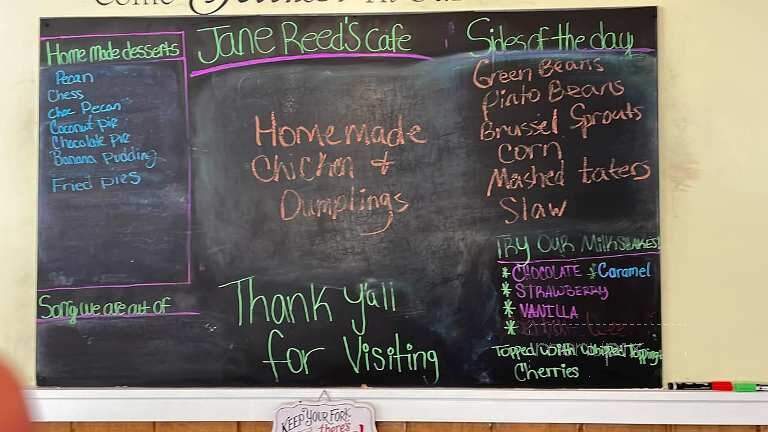 Jane Reed's Cafe
Home Made desserts
Pecan
Chess
choc Pecan
Coconut pie
Chocolate pie
Banana Pudding
Fried pies
Sorry we are out of
Homemade
Chicken &
Dumplings
Thank Y'all
for Visiting
Sides of the day
Green Beans
Pinto Beans
Brussel Sprouts
Corn
Mashed taters
Slaw
TRY OUR MILKSHAKES!
*CHOCOLATE *Caramel
*STRAWBERRY
*VANILLA
*
Topped with whipped Topping
Cherries
KEEP YOUR FORK
there's